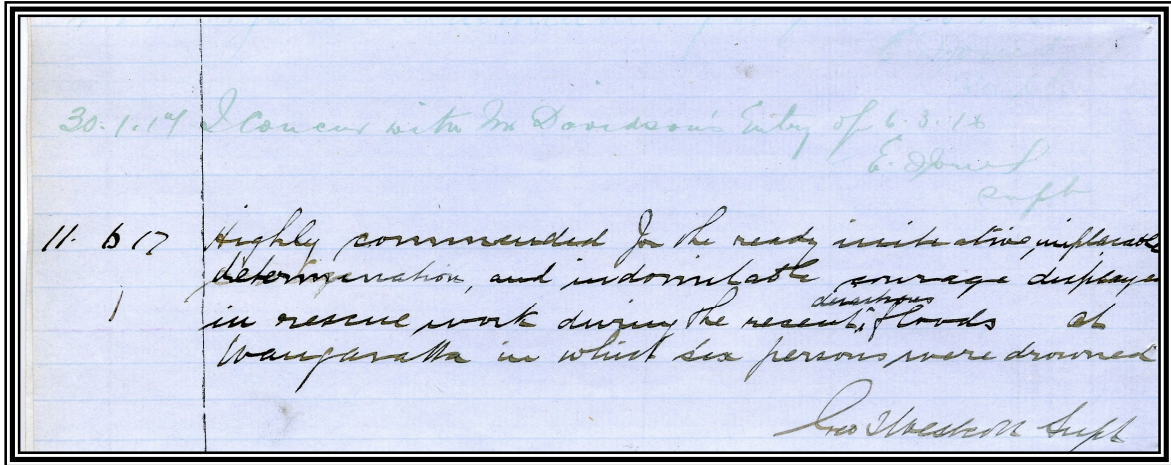 30.1.17 I Concur with Mr Davidson's Entry of 6.3.16
E. Jones
Supt
11. 6 17 Highly commended for the ready initiative, implacable
determination, and indomitable courage displayed
in rescue work during the recent disastrous floods at
Wangaratta in which six persons were drowned
Geo Supt